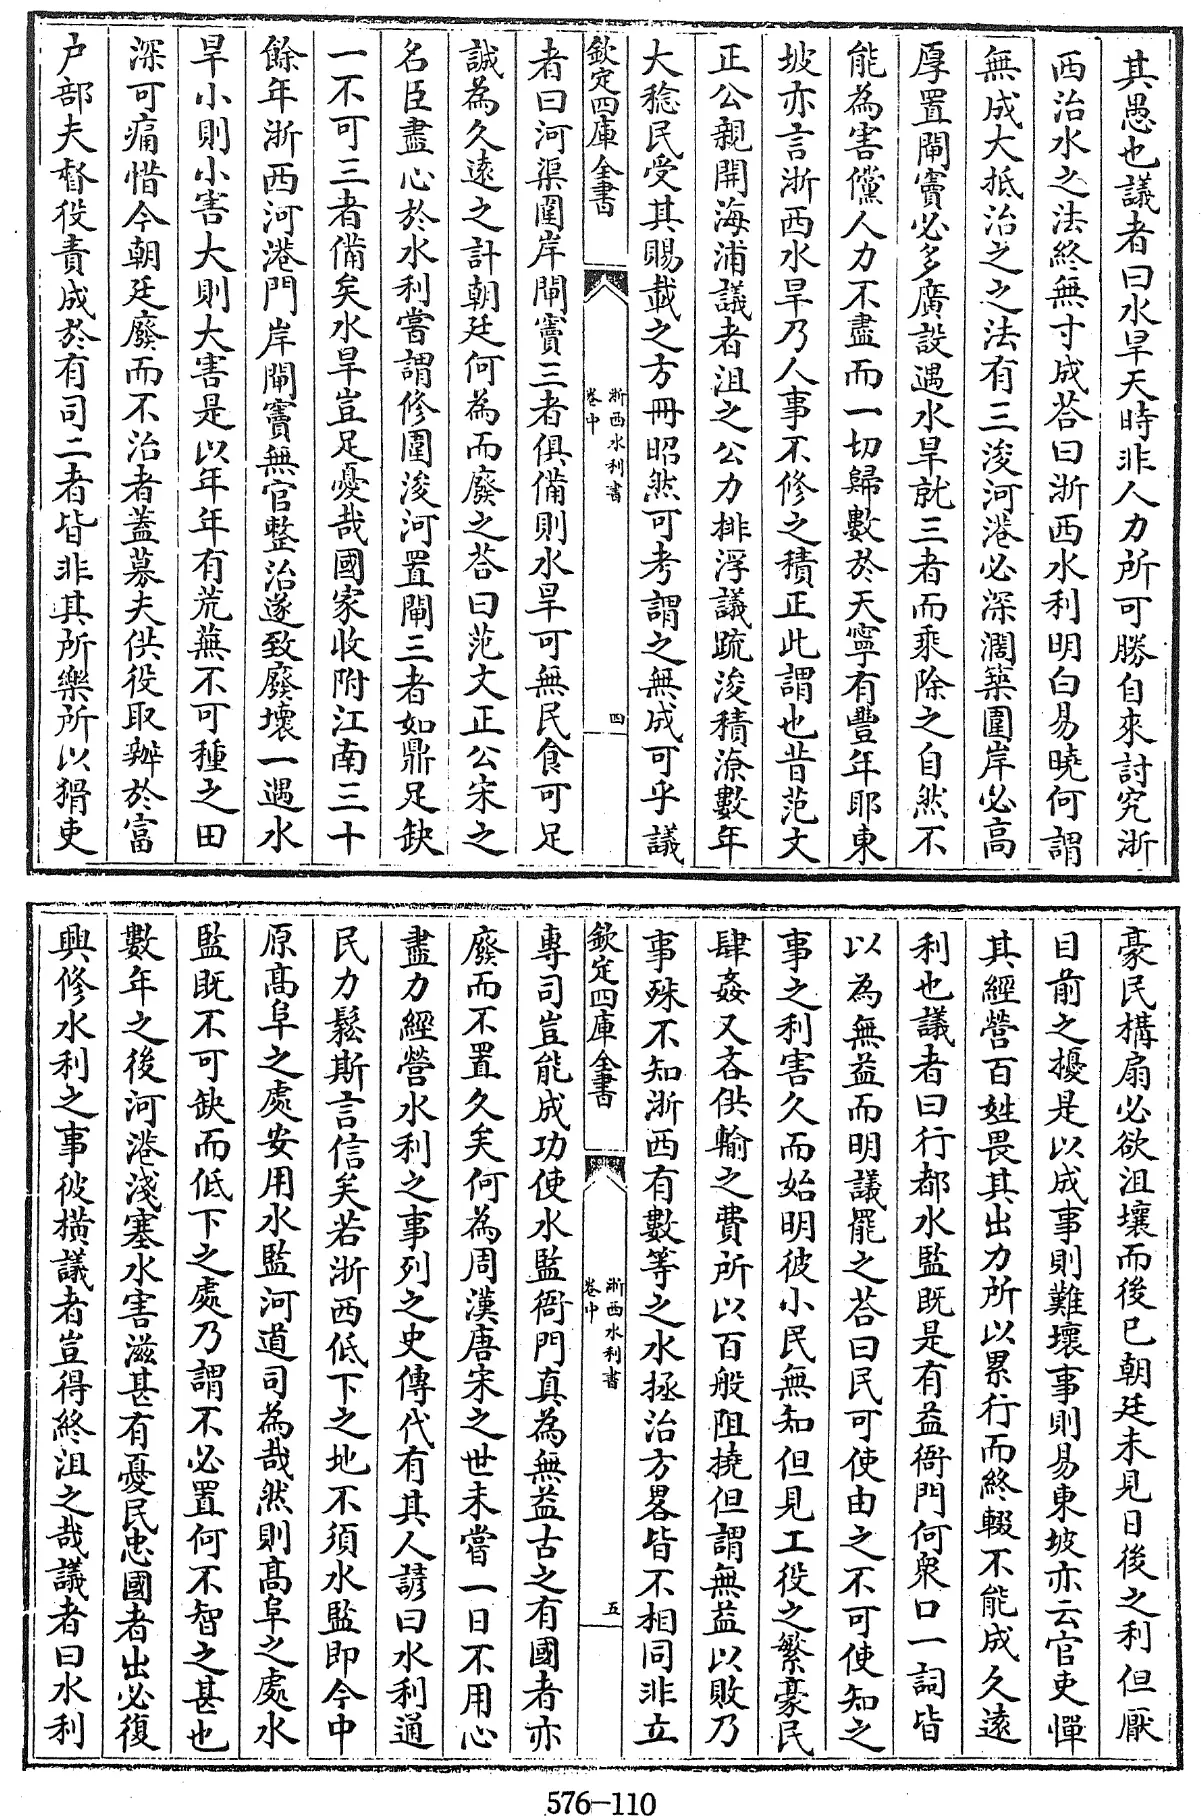 其愚也議者曰水旱天時非人力所可勝自來討究浙
西治水之法終無寸成荅曰浙西水利明白易曉何謂
無成大抵治之之法有三浚河港必深濶築圍岸必高
厚置閘竇必多廣設遇水旱就三者而乘除之自然不
能為害儻人力不盡而一切歸數於天寧有豐年耶東
坡亦言浙西水旱乃人事不修之積正此謂也昔范文
正公親開海浦議者沮之公力排浮議疏浚積潦數年
大稔民受其賜載之方冊昭然可考謂之無成可乎議
欽定四庫全書
浙西水利書
卷中
四
者曰河渠圍岸閘竇三者俱備則水旱可無民食可足
誠為久遠之計朝廷何為而廢之荅曰范文正公宋之
名臣盡心於水利嘗謂修圍浚河置閘三者如鼎足缺
一不可三者備矣水旱豈足憂哉國家收附江南三十
餘年浙西河港門岸閘竇無官整治遂致廢壞一遇水
旱小則小害大則大害是以年年有荒蕪不可種之田
深可痛惜今朝廷廢而不治者蓋募夫供役取辦於富
户部夫督役責成於有司二者皆非其所樂所以猾吏
豪民構扇必欲沮壞而後已朝廷未見日後之利但厭
目前之擾是以成事則難壞事則易東坡亦云官吏憚
其經營百姓畏其出力所以累行而終輟不能成久遠
利也議者曰行都水監既是有益衙門何衆口一詞皆
以為無益而明議罷之荅曰民可使由之不可使知之
事之利害久而始明彼小民無知但見工役之繁豪民
肆姦又吝供輸之費所以百般阻撓但謂無益以敗乃
事殊不知浙西有數等之水拯治方畧皆不相同非立
欽定四庫全書
浙西水利書
卷中
五
專司豈能成功使水監衙門真為無益古之有國者亦
廢而不置久矣何為周漢唐宋之世未嘗一日不用心
盡力經營水利之事列之史傳代有其人諺曰水利通
民力鬆斯言信矣若浙西低下之地不須水監即今中
原高阜之處安用水監河道司為哉然則高阜之處水
監既不可缺而低下之處乃謂不必置何不智之甚也
數年之後河港淺塞水害滋甚有憂民忠國者出必復
興修水利之事彼横議者豈得終沮之哉議者曰水利
576-110